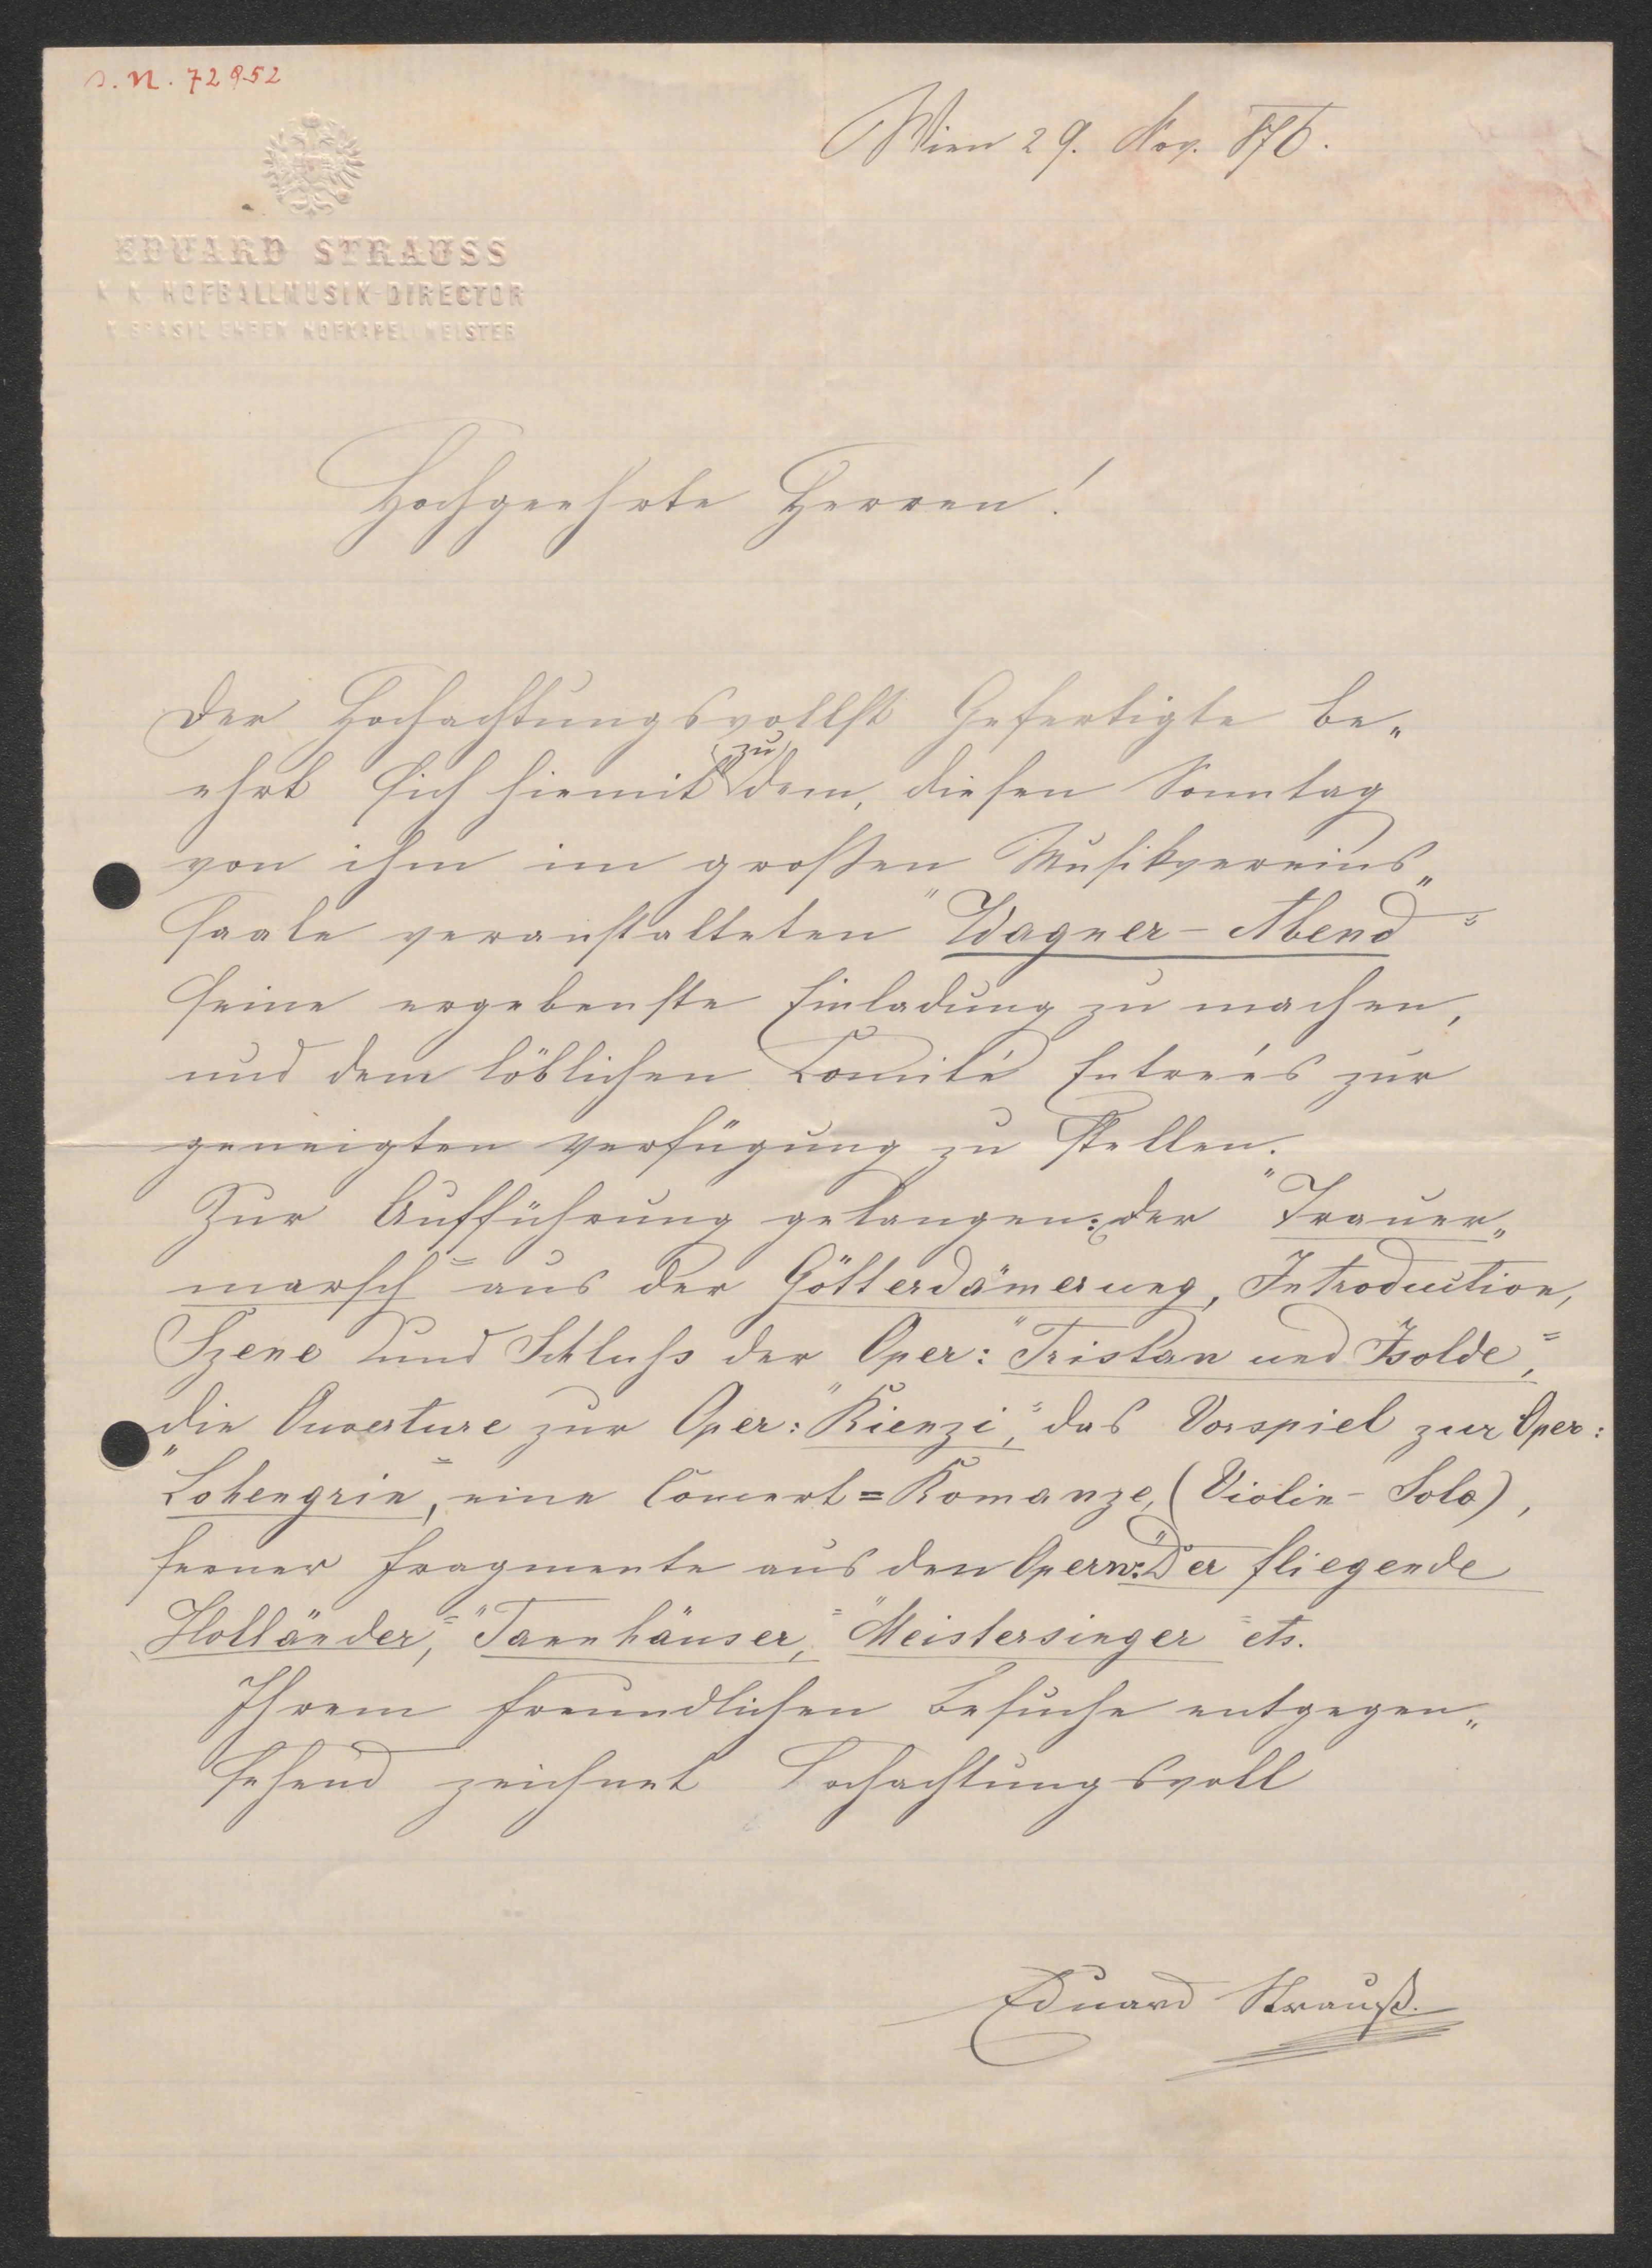 I. N. 72952
Wien 29. Nov. 876.
EDUARD STRAUSS
K. K. HOFBALLMUSIK-DIRECTOR
K. BRASIL. EHREN HOFKAPELLMEISTER
Hochgeehrte Herren!
Der Hochachtungsvollst Gefertigte be„
ehrt sich hiemit zu dem, diesen Sonntag
von ihm im großen Musikvereins„
saale veranstalteten "Wagner-Abend"
seine ergebenste Einladung zu machen,
und dem löblichen Comité Entreés zur
geneigten Verfügung zu stellen.
Zur Aufführung gelangen: der "Trauer„
marsch" aus der Götterdämerung, Introduction,
Szene und Schluss der Oper: "Tristan und Isolde",
die Ouverture zur Oper: "Rienzi", das Vorspiel zur Oper:
"Lohengrin", eine Concert=Romanze, (Violin-Solo),
ferner Fragmente aus den Opern: "Der fliegende
Holländer", "Tannhäuser", "Meistersinger" etc.
Ihrem freundlichen Besuche entgegen„
sehend zeichnet Hochachtungsvoll
Eduard Strauß.